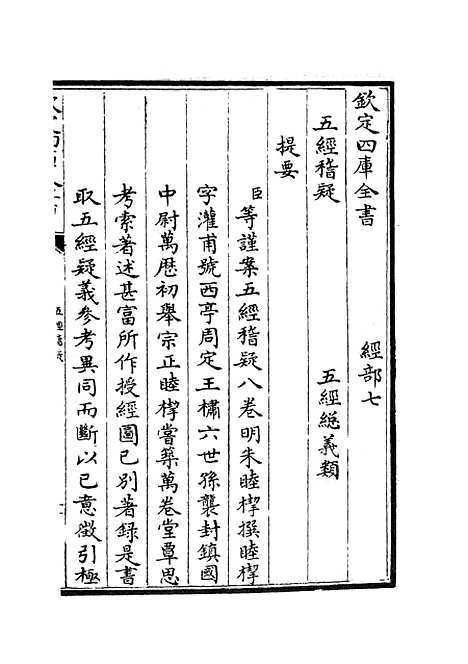 欽定四庫全書　經部七
五經稽疑　五經總義類
提要
臣等謹案五經稽疑八卷明朱睦㮮撰睦㮮
字灌甫號西亭周定王橚六世孫襲封鎮國
中尉萬厯初舉宗正睦㮮嘗築萬卷堂覃思
考索著述甚富所作授經圖已别著録是書
取五經疑義參考異同而斷以已意徵引極
五經稽疑